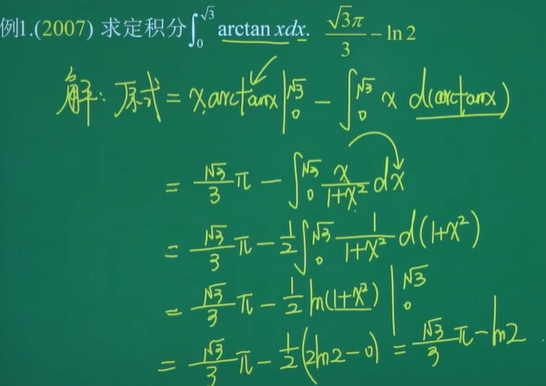 例1.(2007) 求定积分∫₀^√3 arctan xdx. √3π/3 − ln 2
解: 原式 = x arctanx |₀^√3 − ∫₀^√3 x d(arctanx)
= √3/3 π − ∫₀^√3 x/(1+x²) dx
= √3/3 π − 1/2 ∫₀^√3 1/(1+x²) d(1+x²)
= √3/3 π − 1/2 ln(1+x²) |₀^√3
= √3/3 π − 1/2 (2ln2−0) = √3/3 π − ln2